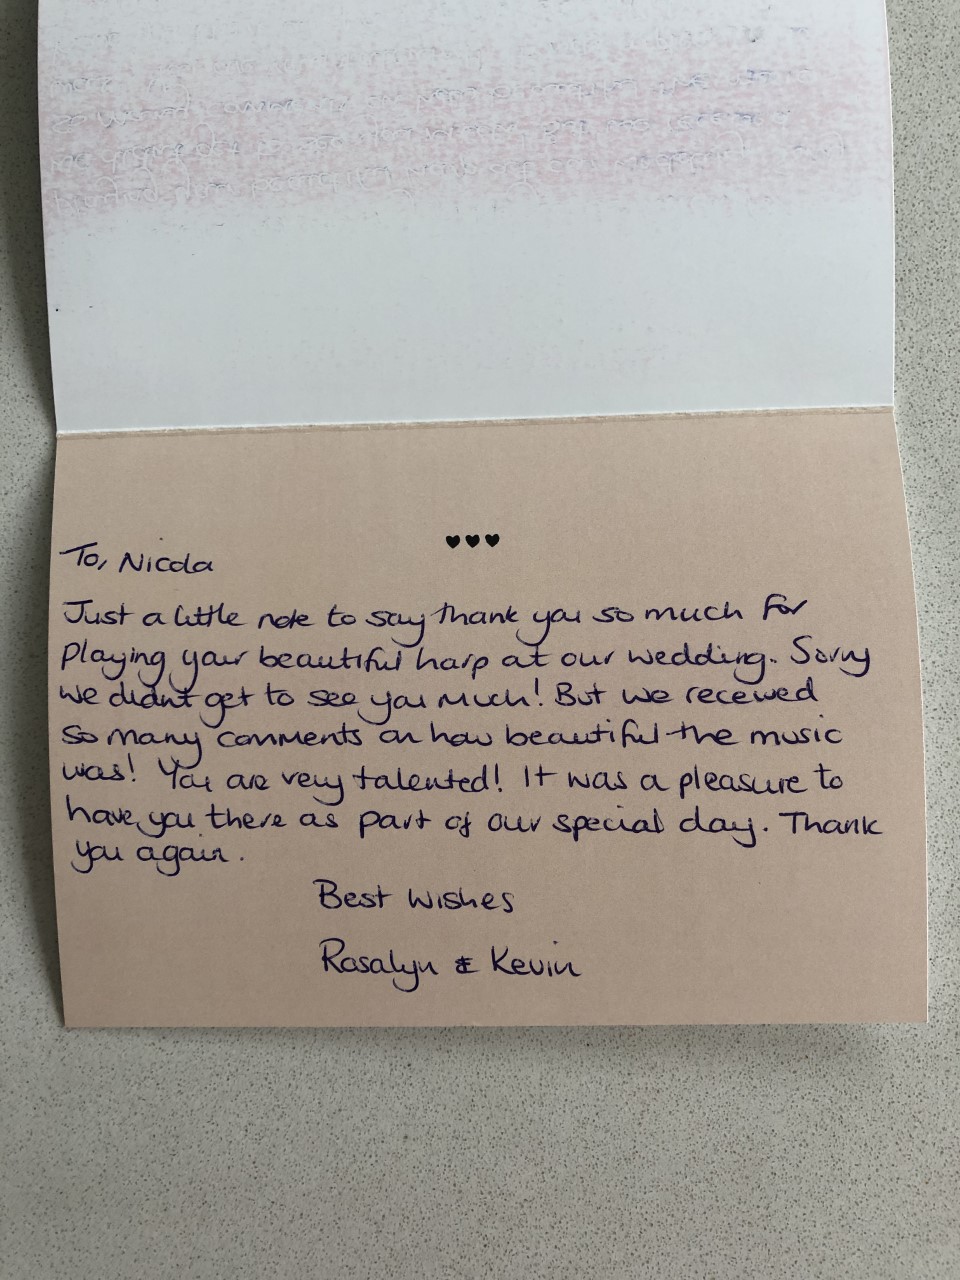 To, Nicola
Just a little note to say thank you so much for
playing your beautiful harp at our wedding. Sorry
we didnt get to see you much! But we received
so many comments on how beautiful the music
was! You are very talented! It was a pleasure to
have you there as part of our special day. Thank
you again.
Best Wishes
Rosalyn & Kevin